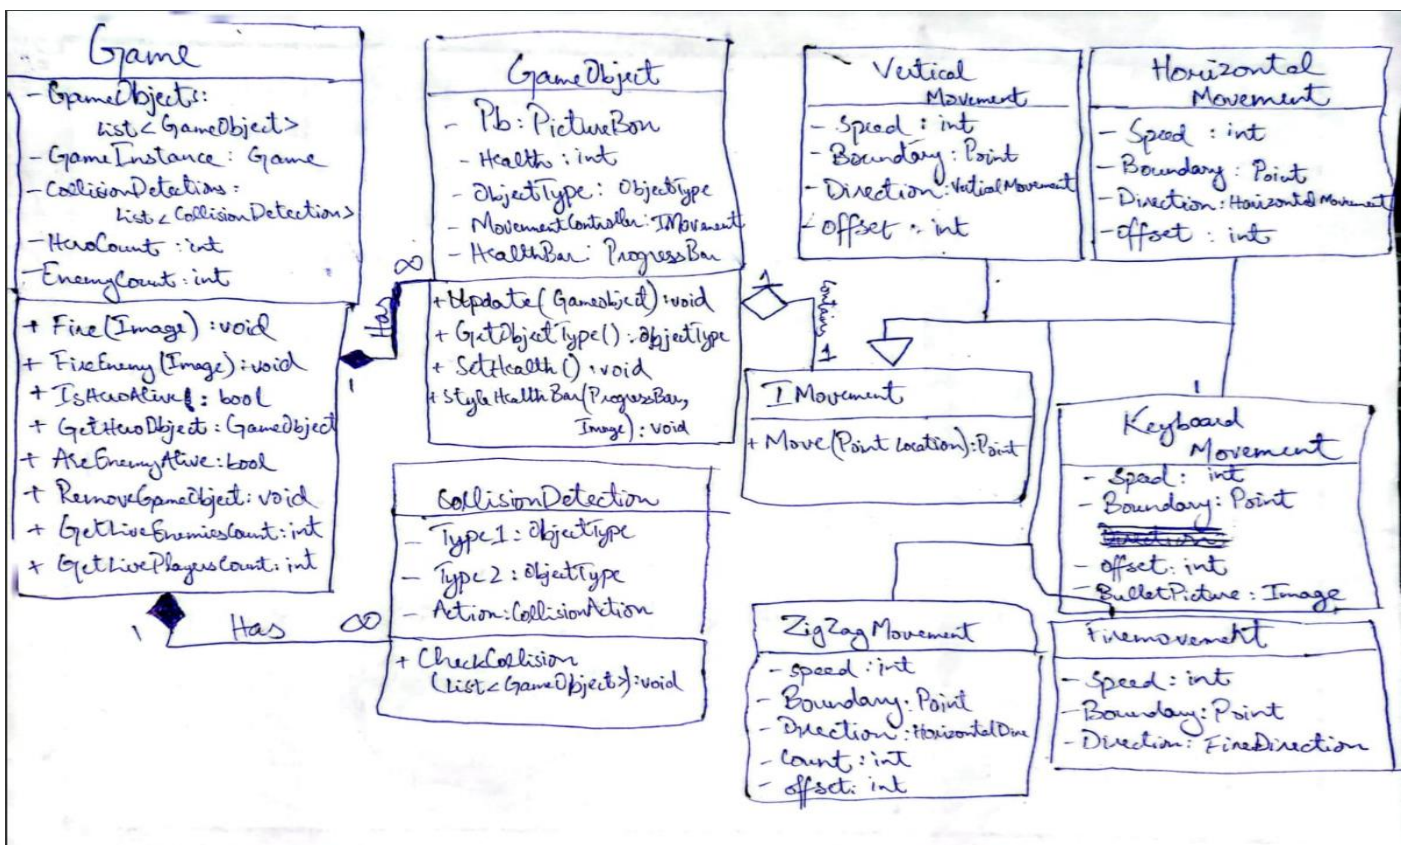 Game
- GameObjects:
List<GameObject>
- GameInstance : Game
- CollisionDetections :
List<CollisionDetection>
- HeroCount : int
- EnemyCount : int
+ Fire(Image) : void
+ FireEnemy(Image) : void
+ IsHeroAlive : bool
+ GetHeroObject : GameObject
+ AreEnemyAlive : bool
+ RemoveGameObject : void
+ GetLiveEnemiesCount : int
+ GetLivePlayersCount : int
Has
∞
1
1
Has
∞
GameObject
- Pb : PictureBox
- Health : int
- ObjectType : ObjectType
- MovementController : IMovement
- HealthBar : ProgressBar
+ Update(Gameobject) : void
+ GetObjectType() : ObjectType
+ SetHealth() : void
+ StyleHealthBar(ProgressBar,
Image) : void
1
Contains 1
CollisionDetection
- Type1 : ObjectType
- Type2 : ObjectType
- Action : CollisionAction
+ CheckCollision
(List<GameObject>) : void
Vertical
Movement
- Speed : int
- Boundary : Point
- Direction : VerticalMovement
- offset : int
Horizontal
Movement
- Speed : int
- Boundary : Point
- Direction : Horizontal Movement
- offset : int
IMovement
+ Move(Point Location) : Point
Keyboard
Movement
- Speed : int
- Boundary : Point
- offset : int
- BulletPicture : Image
ZigZagMovement
- speed : int
- Boundary : Point
- Direction : HorizontalDire
- Count : int
- offset : int
Firemovement
- Speed : int
- Boundary : Point
- Direction : FireDirection